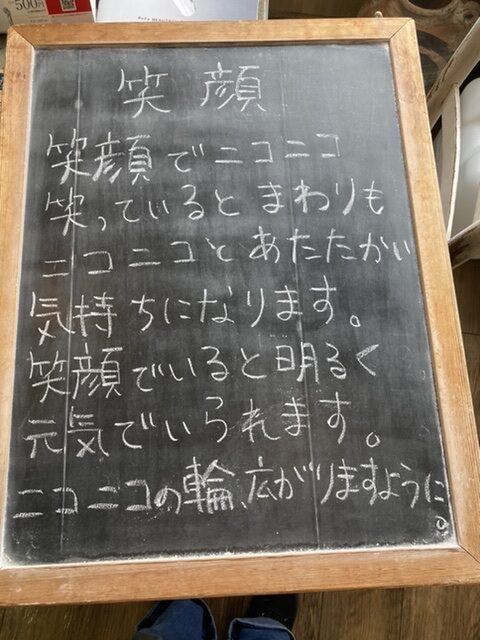 500円
笑顔
笑顔でニコニコ
笑っているとまわりも
ニコニコとあたたかい
気持ちになります。
笑顔でいると明るく
元気でいられます。
ニコニコの輪、広がりますように。